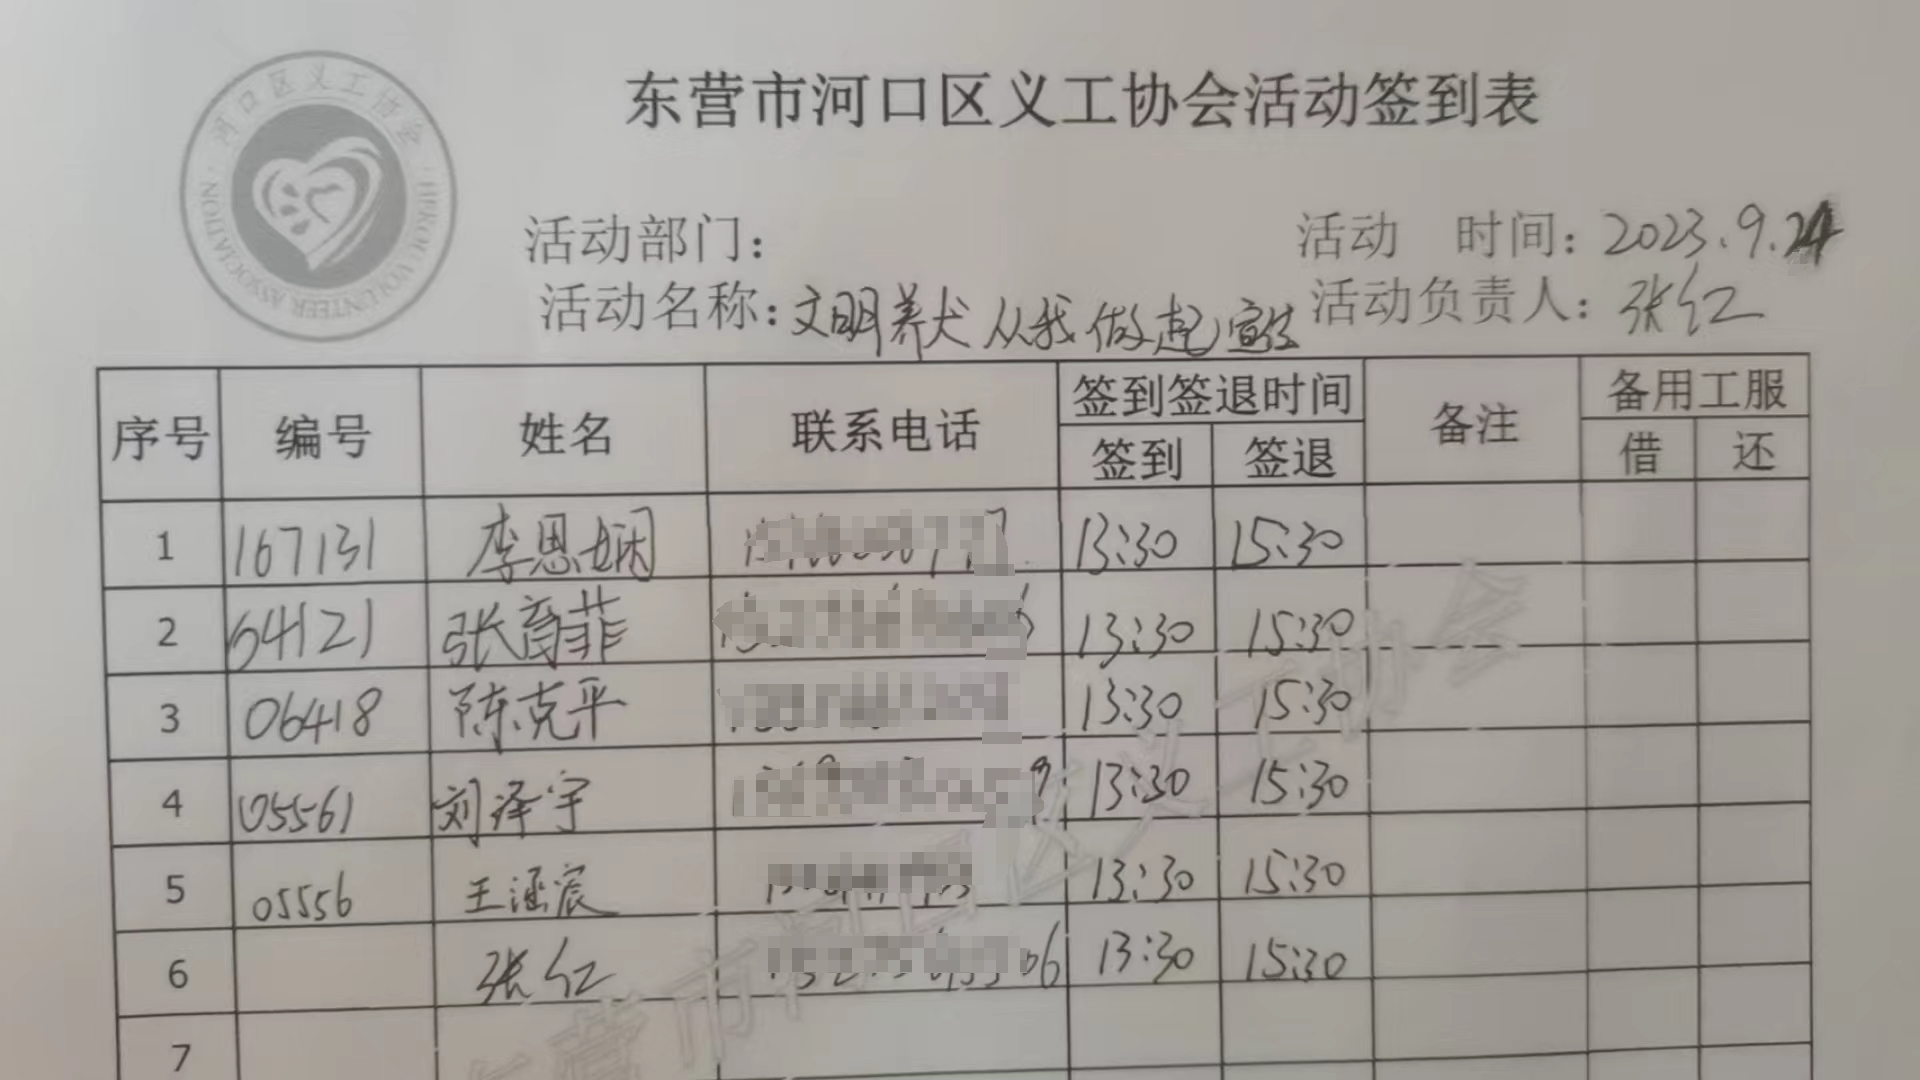 东营市河口区义工协会活动签到表
河口区义工协会
HEKOU VOLUNTEER ASSOCIATION
活动部门：
活动 时间：2023.9.24
活动名称：文明养犬从我做起宣传
活动负责人：张红
序号 编号 姓名 联系电话 签到签退时间 备注 备用工服
签到 签退 借 还
1 167131 李思娴 13:30 15:30
2 64121 张育菲 13:30 15:30
3 06418 陈克平 13:30 15:30
4 05561 刘泽宇 13:30 15:30
5 05556 王涵宸 13:30 15:30
6 张红 13:30 15:30
7
东营市河口区义工协会